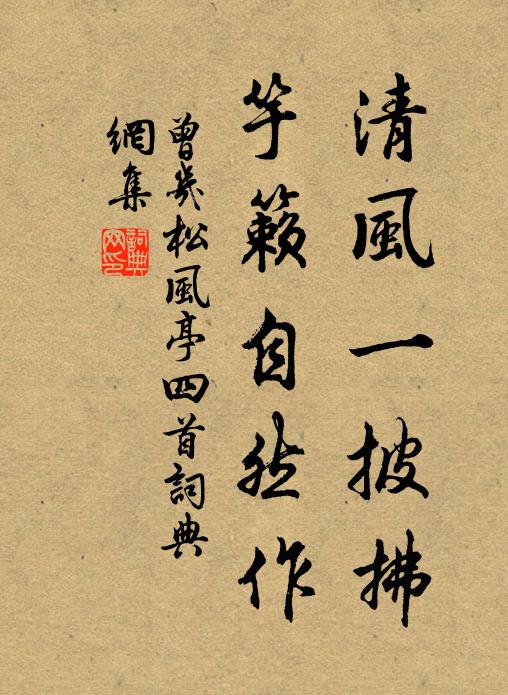 清風一披拂
竽籟自然作
曾幾松風亭四首詞典
網集
詞典網印